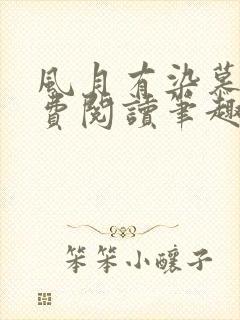 風月有染慕
費閱讀筆趣
笨笨小釀子